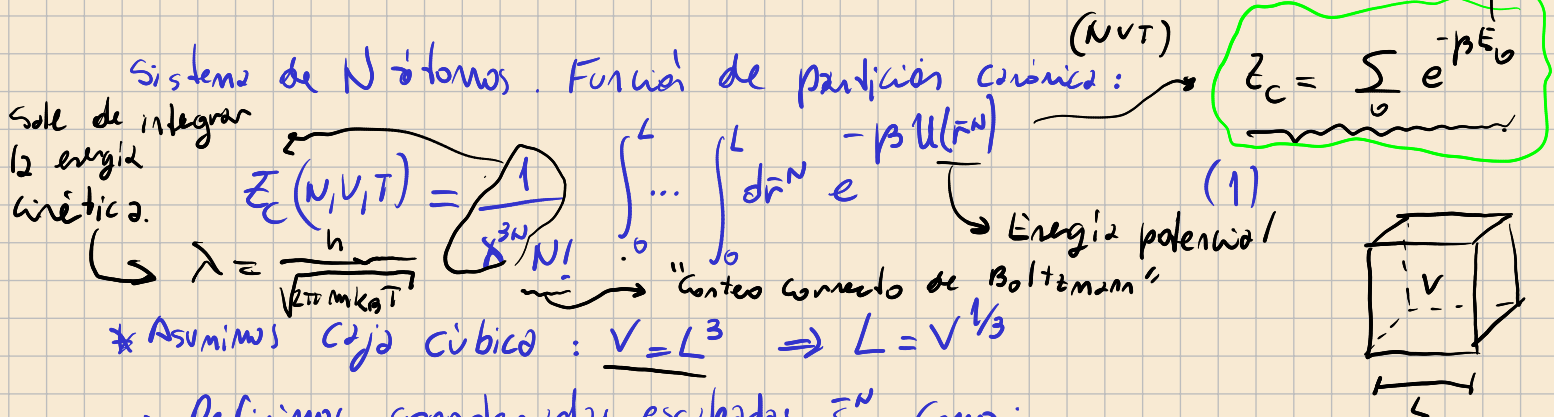 (NVT)
Z_C = Σ_υ e^{-βE_υ}
Sistema de N átomos. Función de partición canónica:
Sale de integrar
la energía
cinética.
Z_C(N,V,T) = 1/(λ^{3N} N!) ∫_0^L ... ∫_0^L dr̄^N e^{-βU(r̄^N)} (1)
Energía potencial
λ = h/√(2πmk_BT)
"Conteo correcto de Boltzmann"
V
* Asumimos caja cúbica : V = L^3 ⇒ L = V^{1/3}
L